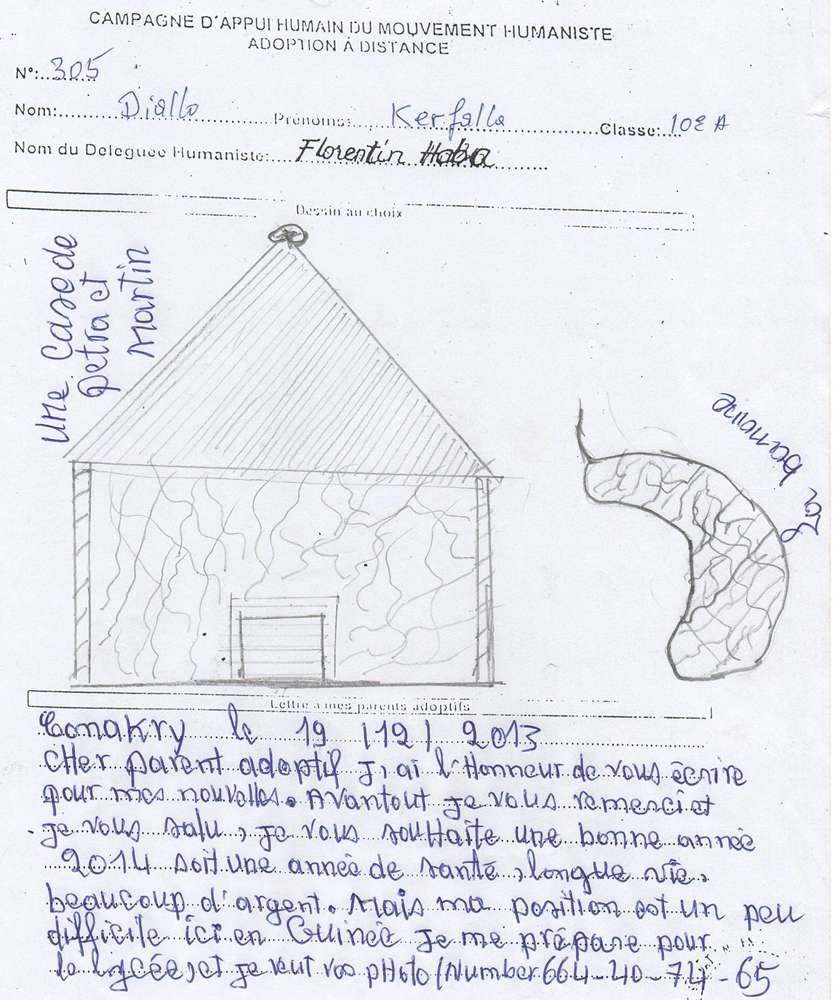 CAMPAGNE D'APPUI HUMAIN DU MOUVEMENT HUMANISTE
ADOPTION À DISTANCE
N°:...305
Nom:...Diallo...Prénoms:...Kerfalla...Classe:...10E A
Nom du Deleguee Humaniste:...Florentin Haba
Dessin au choix
Une Case de
Petra et
Martin
La Banane
Lettre a mes parents adoptifs
Conakry le 19 |12| 2013
CHer parent adoptif J,ai l'Honneur de vous écrire
pour mes nouvelles. Avantout je vous remerci et
je vous salu, je vous souHaite une bonne année
2014 soit une année de santé, longue vie,
beaucoup d'argent. Mais ma position est un peu
difficile ici en Guinée je me prépare pour
le lycée, et je veut vos pHoto (Number 664-40-74-65